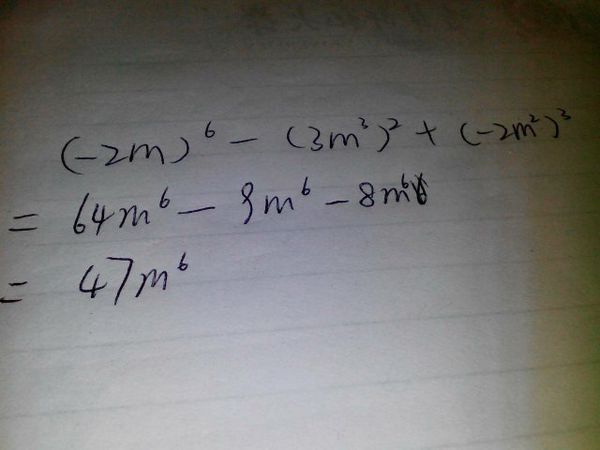 (-2m)⁶ - (3m³)² + (-2m²)³
= 64m⁶ - 9m⁶ - 8m⁶
= 47m⁶